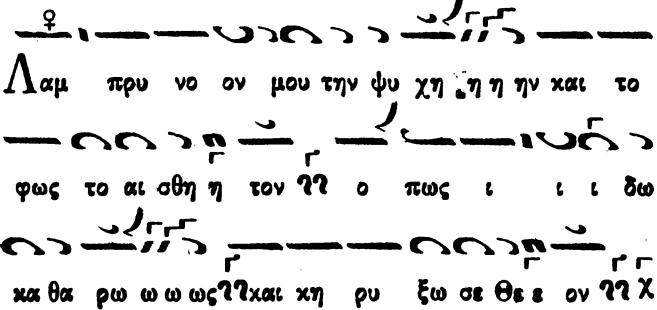 Λαμ πρυ νο ον μου την ψυ χη η η ην και το
φως το αι σθη η τον ο πως ι ι ι δω
κα θα ρω ω ω ως και κη ρυ ξω σε Θε ε ον